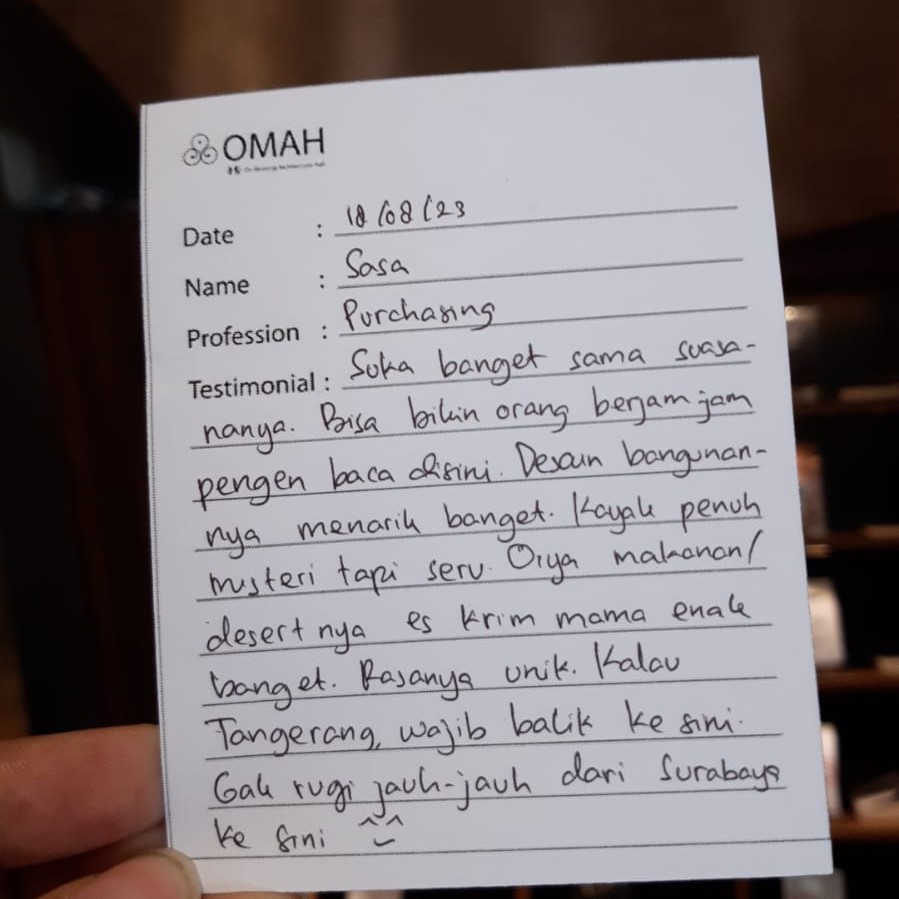 OMAH
Date : 18/08/23
Name : Sasa
Profession : Purchasing
Testimonial : Suka banget sama suasa-
nanya. Bisa bikin orang berjam jam
pengen baca disini. Desain bangunan-
nya menarik banget. Kayak penuh
misteri tapi seru. Oiya makanan/
desert nya es krim mama enak
banget. Rasanya unik. Kalau
Tangerang, wajib balik ke sini.
Gak rugi jauh-jauh dari Surabaya
ke sini ^‿^